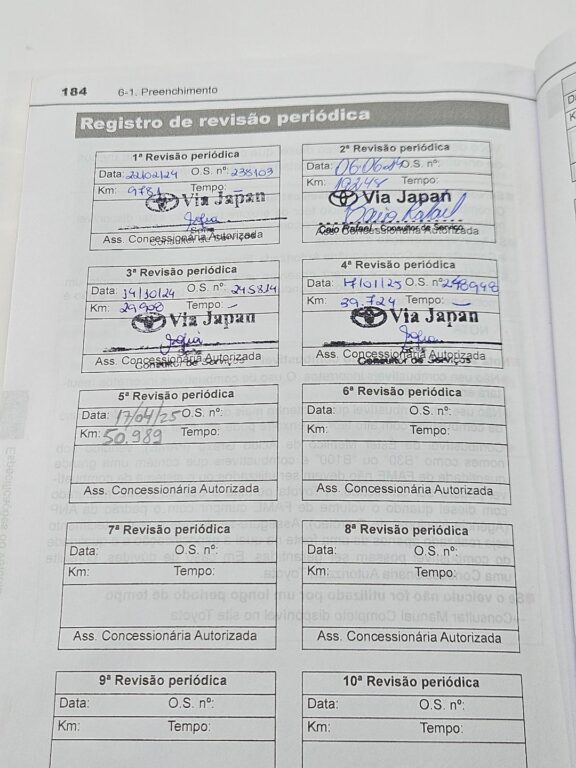 184 6-1. Preenchimento
Registro de revisão periódica
1ª Revisão periódica
Data: 22/02/24 O.S. nº: 238103
Km: 9781 Tempo: –
Via Japan
Ass. Concessionária Autorizada
Consultor de Serviços
2ª Revisão periódica
Data: 06.06.24 O.S. nº:
Km: Tempo:
Via Japan
Caio Rafael
Caio Rafael - Consultor de Serviço
Ass. Concessionária Autorizada
3ª Revisão periódica
Data: 14/10/24 O.S. nº: 245814
Km: 29908 Tempo: –
Via Japan
Ass. Concessionária Autorizada
Consultor de Serviços
4ª Revisão periódica
Data: 17/01/25 O.S. nº: 248948
Km: 39.724 Tempo: –
Via Japan
Ass. Concessionária Autorizada
Consultor de Serviços
5ª Revisão periódica
Data: 17/04/25 O.S. nº:
Km: 50.989 Tempo:
Ass. Concessionária Autorizada
6ª Revisão periódica
Data: O.S. nº:
Km: Tempo:
Ass. Concessionária Autorizada
7ª Revisão periódica
Data: O.S. nº:
Km: Tempo:
Ass. Concessionária Autorizada
8ª Revisão periódica
Data: O.S. nº:
Km: Tempo:
Ass. Concessionária Autorizada
9ª Revisão periódica
Data: O.S. nº:
Km: Tempo:
10ª Revisão periódica
Data: O.S. nº:
Km: Tempo: